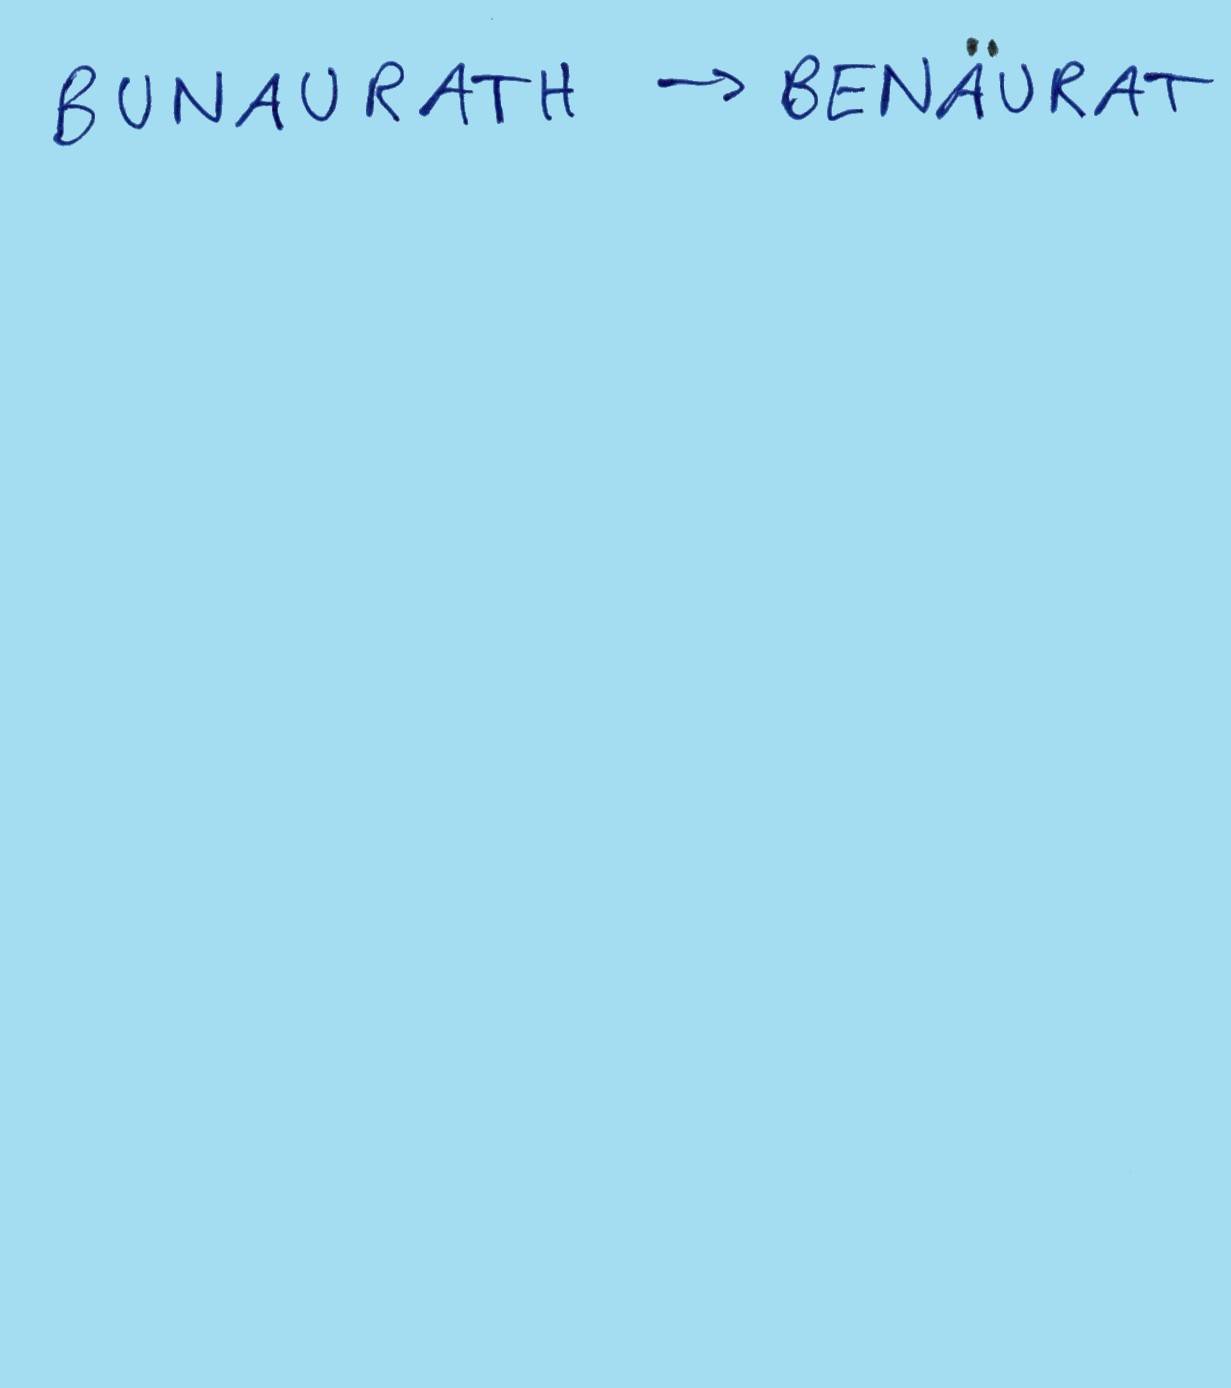 BUNAURATH → BENÄURAT